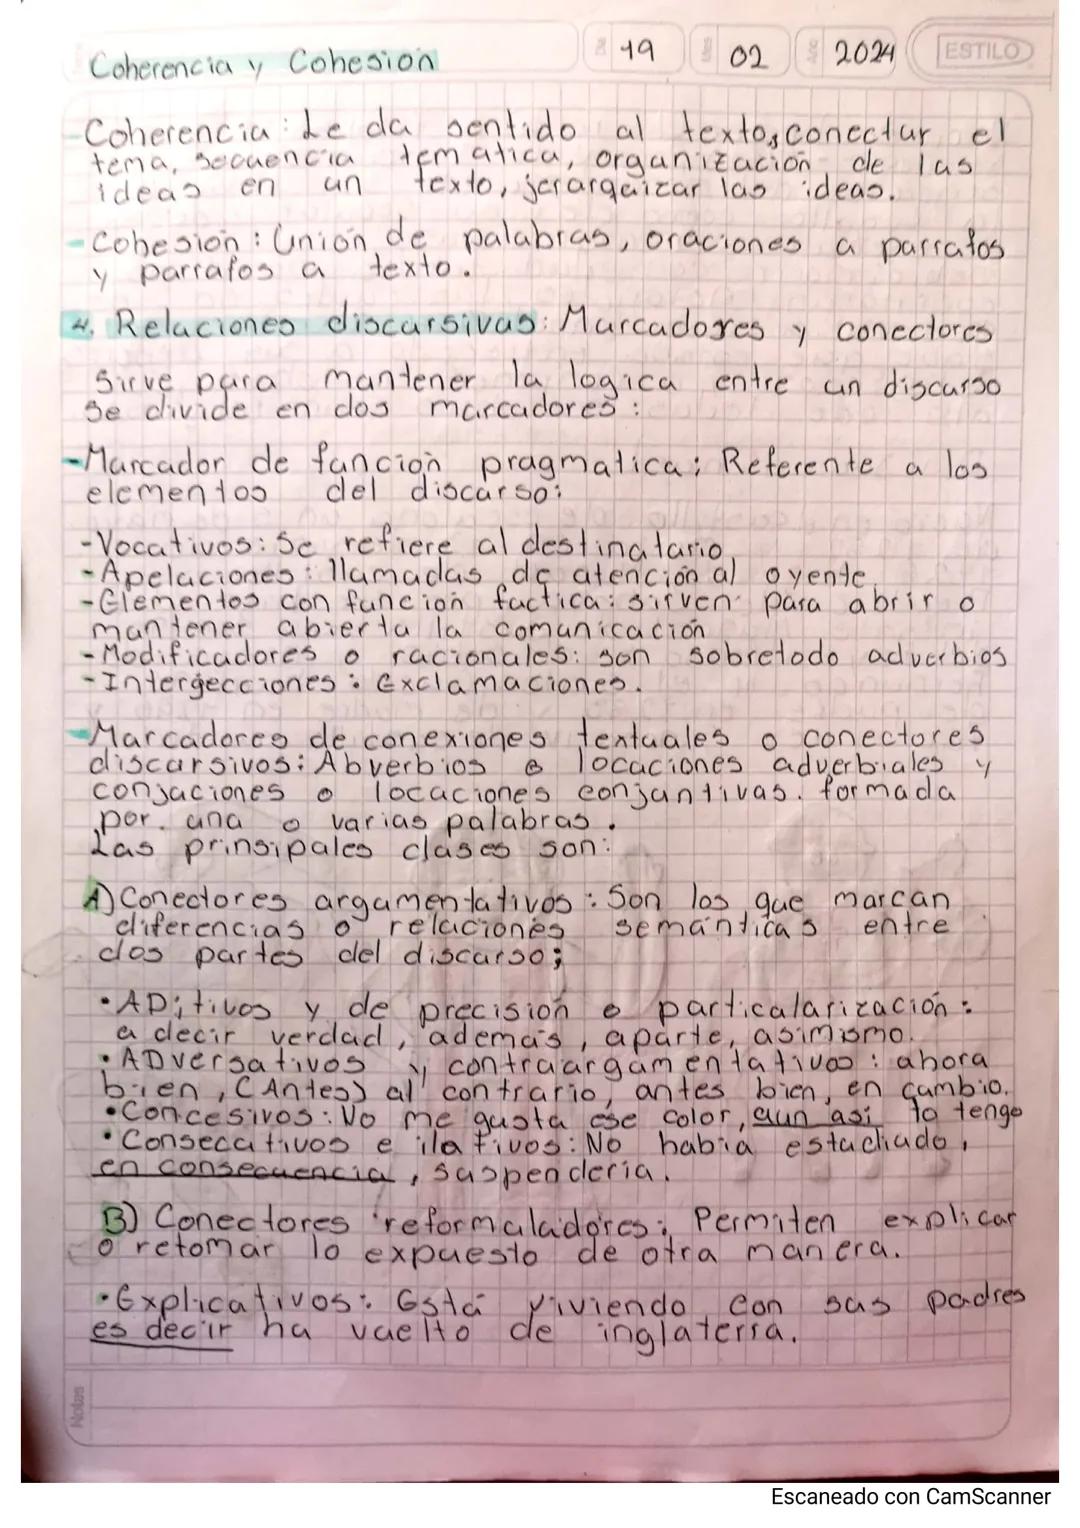 Coherencia y Cohesion
Dia 19 Mes 02 Año 2024 ESTILO
-Coherencia: Le da sentido al texto, conectar el
tema, secuencia tematica, organización de las
ideas en un texto, jerarquizar las ideas.
-Cohesion: Unión de palabras, oraciones a parrafos
y parrafos a texto.
4. Relaciones discursivas: Marcadores y conectores
Sirve para mantener la logica entre un discurso
se divide en dos marcadores:
-Marcador de funcion pragmatica: Referente a los
elementos del discurso:
-Vocativos: Se refiere al destinatario
-Apelaciones: llamadas de atención al oyente
-Elementos con funcion factica: sirven para abrir o
mantener abierta la comunicación
-Modificadores o racionales: son sobretodo adverbios
-Intergecciones: Exclamaciones.
-Marcadores de conexiones textuales o conectores
discursivos: Abverbios o locuciones adverbiales y
conjuciones o locuciones conjuntivas. formada
por una o varias palabras.
Las prinsipales clases son:
A) Conectores argumentativos: Son los que marcan
diferencias o relaciones semánticas entre
dos partes del discurso;
•ADitivos y de precision o particularización:
a decir verdad, además, aparte, asimismo.
•ADversativos y contraargumentativos: ahora
bien, (Antes) al contrario, antes bien, en cambio.
•Concesivos: No me gusta ese color, aun asi lo tengo
•Consecutivos e ilativos: No habia estudiado,
en consecuencia, suspenderia.
B) Conectores reformuladores: Permiten explicar
o retomar lo expuesto de otra manera.
•Explicativos: Está viviendo con sus padres
es decir ha vuelto de inglaterra.
Notas
Escaneado con CamScanner